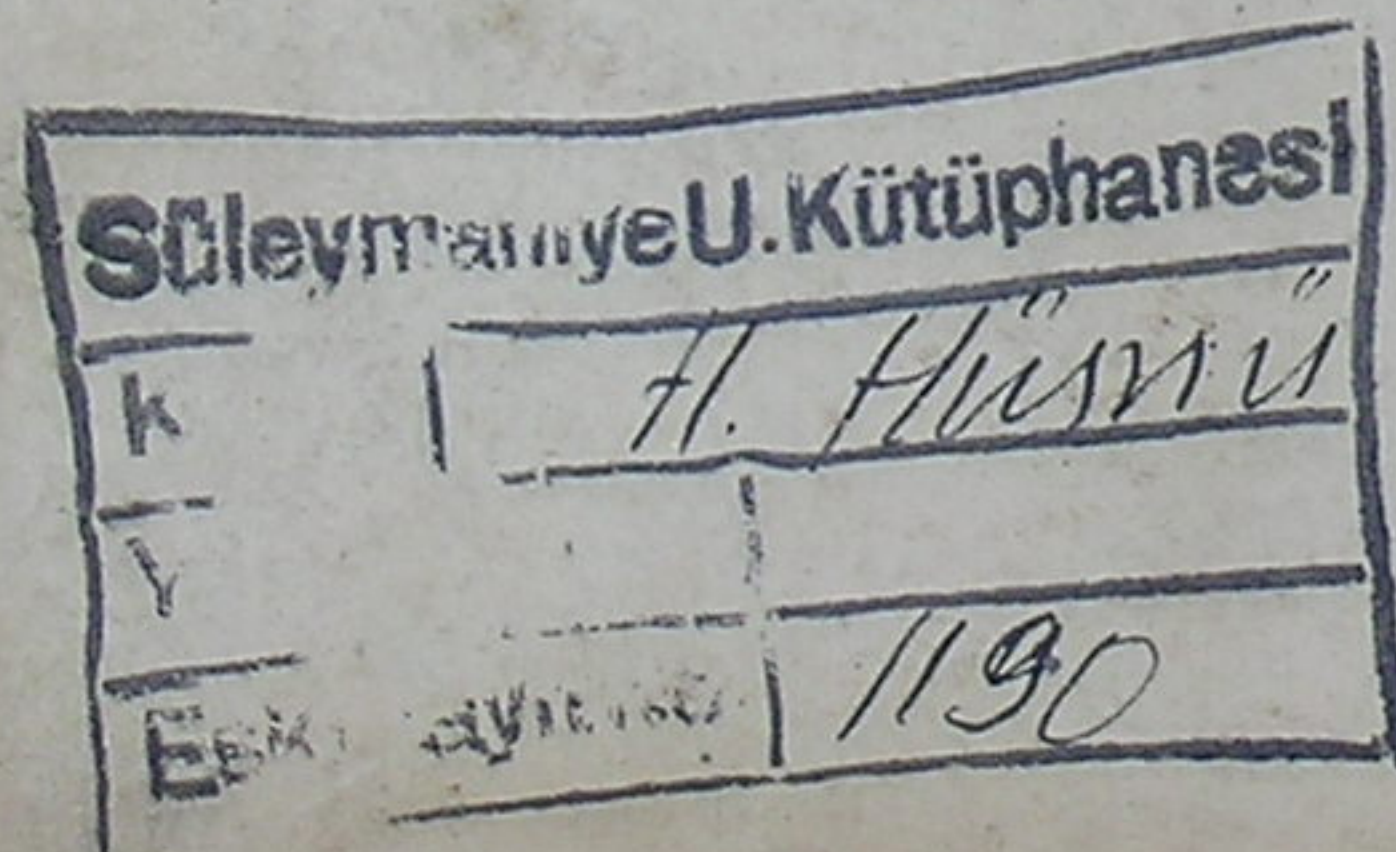 Süleymaniye U. Kütüphanesi
K H. Hüsnü
Y
Eski 1190